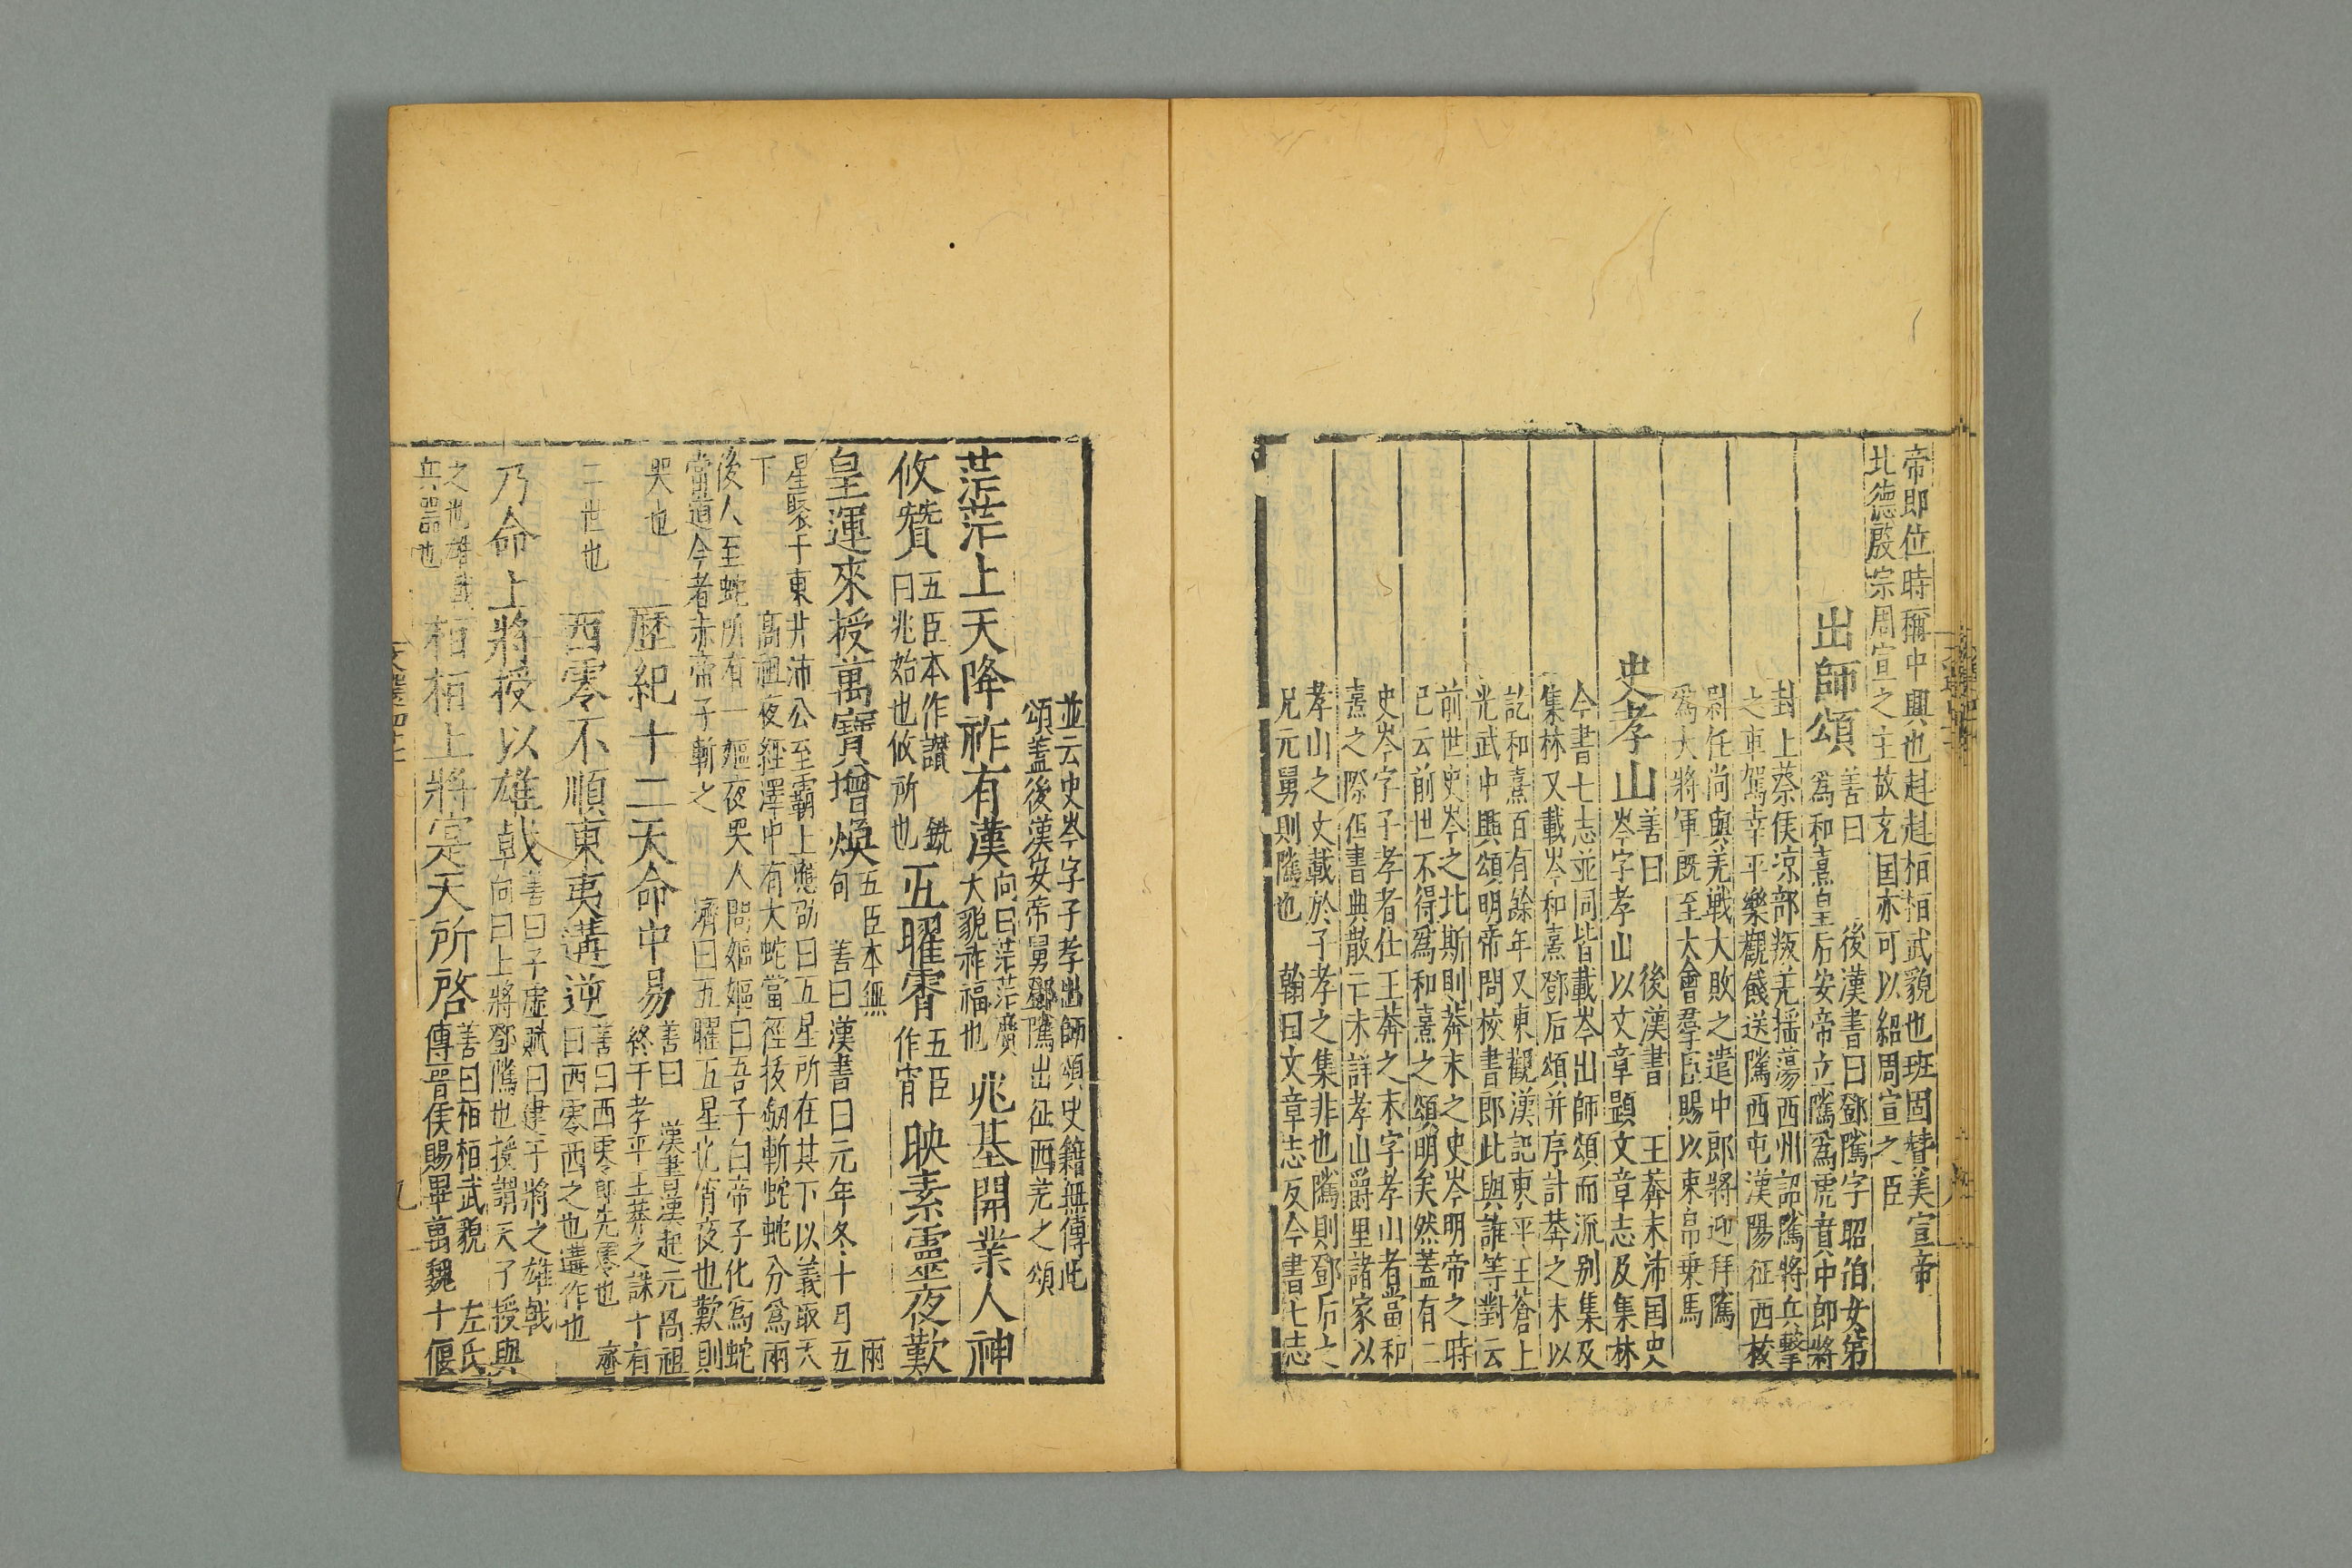 帝即位時稱中興也赳赳桓桓武貌也班固賛美宣帝
北德殷宗周宣之主故充国亦可以紹周宣之臣
出師頌
善曰 後漢書曰鄧隲字昭伯女第
爲和熹皇后安帝立隲爲虎賁中郎將
封上蔡侯凉部叛羌揺蕩西州詔隲將兵擊
之車駕幸平樂觀餞送隲西屯漢陽征西校
尉任尚與羌戦大敗之遣中郎將迎拜隲
爲大將軍既至大會羣臣賜以束帛乗馬
史孝山
善曰 後漢書 王莽末沛国史
岑字孝山以文章顕文章志及集林
今書七志並同皆載岑出師頌而流别集及
集林又載岑和熹鄧后頌并序計莽之末以
訖和熹百有餘年又東觀漢記東平王蒼上
光武中興頌明帝問校書郎此與誰等對云
前世史岑之比斯則莽末之史岑明帝之時
已云前世不得爲和熹之頌明矣然蓋有二
史岑字子孝者仕王莽之末字孝山者當和
熹之際但書典散亡未詳孝山爵里諸家以
孝山之文載於子孝之集非也隲則鄧后之
兄元舅則隲也 翰曰文章志及今書七志
並云史岑字子孝出師頌史籍無傳此
頌蓋後漢安帝舅鄧隲出征西羌之頌
茫茫上天降祚有漢
向曰茫茫廣
大貌祚福也
兆基開業人神
攸贊
五臣本作讃 銑
曰兆始也攸所也
五曜霄
五臣
作宵
映素靈夜歎
皇運來授萬寶增煥
五臣本無 兩
句 善曰漢書曰元年冬十月五
星聚于東井沛公至霸上應劭曰五星所在其下以義取天
下 高祖夜經澤中有大蛇當徑拔劒斬蛇蛇分爲兩
後人至蛇所有一嫗夜哭人問嫗嫗曰吾子白帝子化爲蛇
當道今者赤帝子斬之 濟曰五曜五星也宵夜也歎則
哭也
歷紀十二天命中易
善曰 漢書漢起元高祖
終于孝平王莽之誅十有
二世也
西零不順東夷遘逆
善曰西零即先零也 濟
曰西零西之也遘作也
乃命上將授以雄戟
善曰子虚賦曰建干將之雄戟
向曰上將鄧隲也授謂天子授與
之也雄戟
兵噐也
桓桓上將寔天所啓
善曰桓桓武貌 左氏
傳晋侯賜畢萬魏卜偃